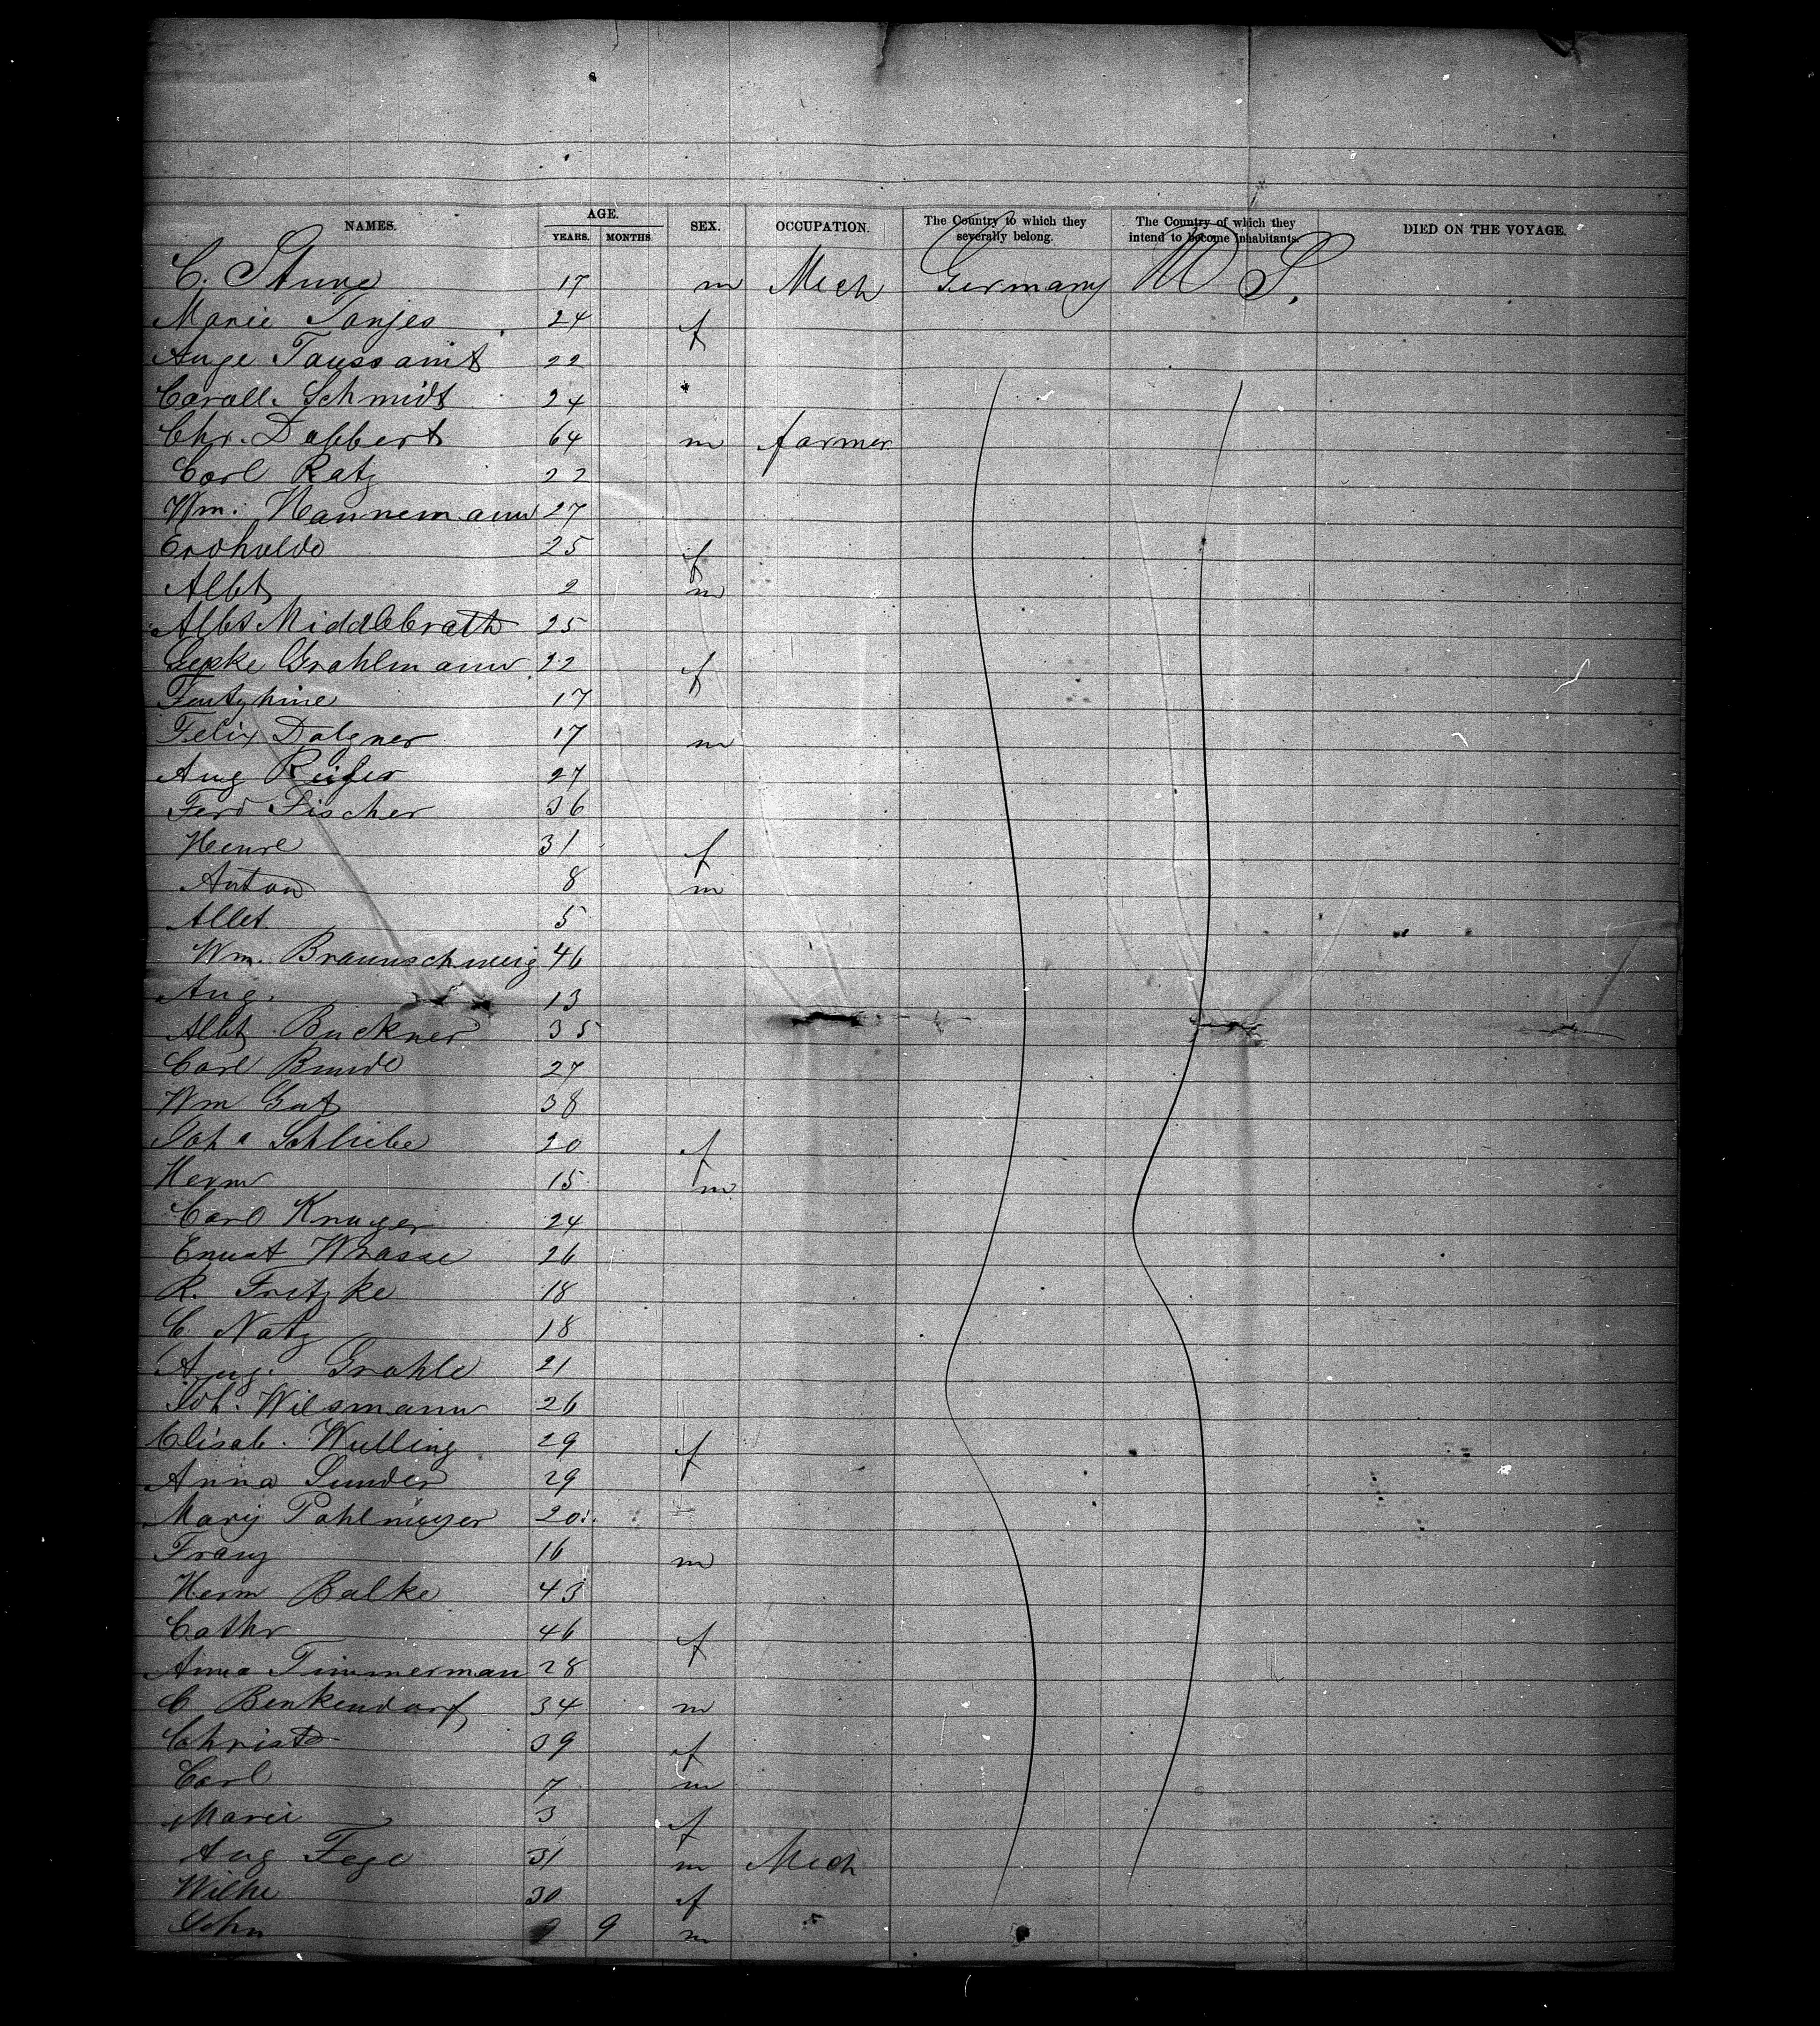 NAMES. AGE. YEARS. MONTHS. SEX. OCCUPATION. The Country to which they severally belong. The Country of which they intend to become inhabitants. DIED ON THE VOYAGE.
C. 17 m Mech Germany U S.
Marie Tonjes 24 f
Auge Toussaint 22
Caroll. Schmidt 24
Chr. Dabbert 64 m farmer
Carl Ratz 22
Wm. Hannemann 27
25 f
Albt 2 m
Albt Middlebrath 25
Gepke Grahlmann 22 f
17
Felix Dalgner 17 m
Aug Reifer 27
Ferd Fischer 36
Henre 31 f
Anton 8 m
Albt. 5
Wm. Braunschweig 46
Aug. 13
Albt Buckner 35
Carl Bunde 27
Wm Gut 38
Joh a Schliebe 20 f
Herm 15 m
Carl Kruger 24
Ernst Wrasse 26
R. Fritzke 18
C Natz 18
Aug. Grahle 21
Joh. Wilsmann 26
Elisab. Wulling 29 f
Anna Sunder 29
Mary Pohlmeyer 20
Franz 16 m
Herm Balke 43
Cathr 46 f
Anna Timmerman 28
C Benkendorf 34 m
Christ 39 f
Carl 7 m
Marie 3 f
Aug Fege 31 m Mech
Wilhe 30 f
John 9 m